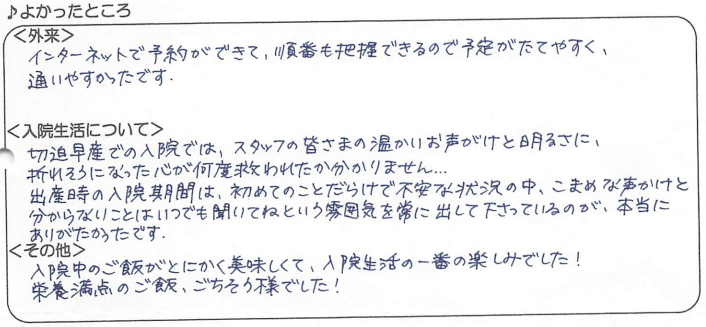 ♪よかったところ
＜外来＞
インターネットで予約ができて、順番も把握できるので予定がたてやすく、
通いやすかったです.
＜入院生活について＞
切迫早産での入院では、スタッフの皆さまの温かいお声がけと明るさに、
折れそうになった心が何度救われたか分かりません…
出産時の入院期間は、初めてのことだらけで不安な状況の中、こまめな声かけと
分からないことはいつでも聞いてねという雰囲気を常に出して下さっているのが、本当に
ありがたかったです.
＜その他＞
入院中のご飯がとにかく美味しくて、入院生活の一番の楽しみでした！
栄養満点のご飯、ごちそう様でした！